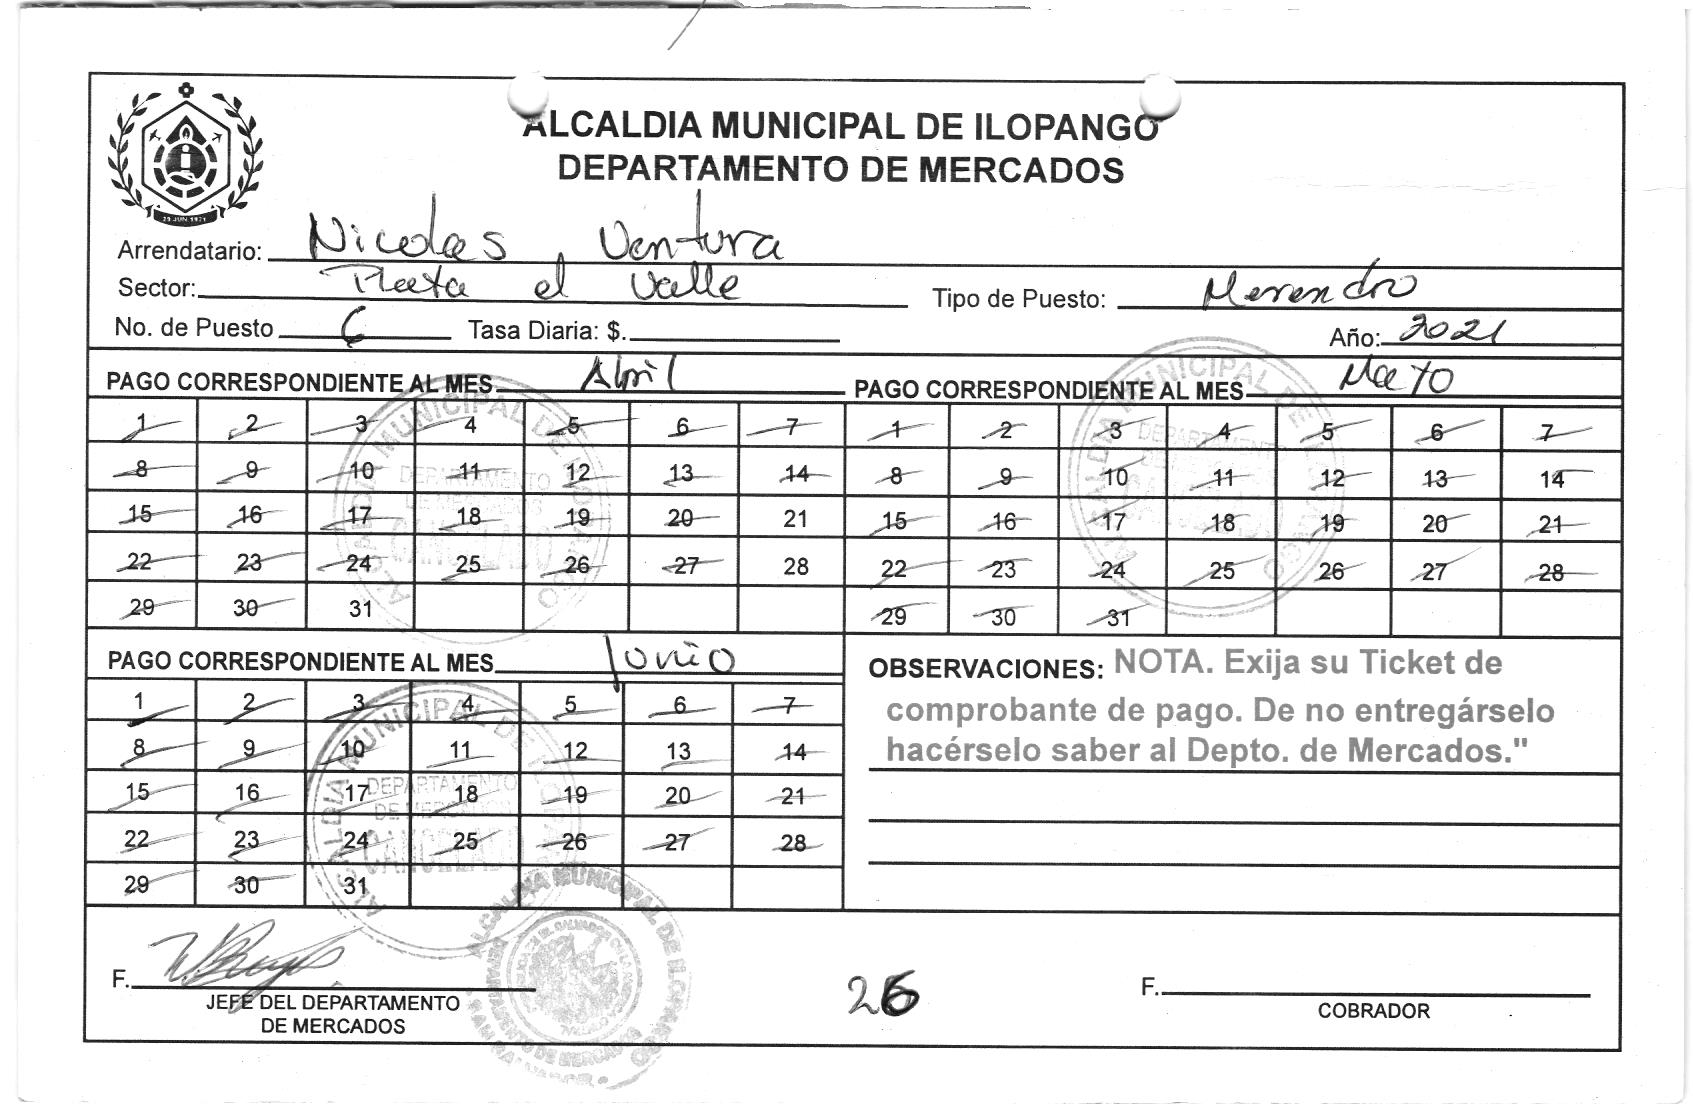 ALCALDIA MUNICIPAL DE ILOPANGO
DEPARTAMENTO DE MERCADOS
29 JUN. 1971
Arrendatario: Nicolas Ventura
Sector: Plaza el Valle Tipo de Puesto: Merendro
No. de Puesto 6 Tasa Diaria: $. Año: 2021
PAGO CORRESPONDIENTE AL MES Abril
1 2 3 4 5 6 7
8 9 10 11 12 13 14
15 16 17 18 19 20 21
22 23 24 25 26 27 28
29 30 31
PAGO CORRESPONDIENTE AL MES Mayo
1 2 3 4 5 6 7
8 9 10 11 12 13 14
15 16 17 18 19 20 21
22 23 24 25 26 27 28
29 30 31
ALCALDIA MUNICIPAL DE ILOPANGO
DEPARTAMENTO
DE MERCADOS
CANCELADO
PAGO CORRESPONDIENTE AL MES Junio
1 2 3 4 5 6 7
8 9 10 11 12 13 14
15 16 17 18 19 20 21
22 23 24 25 26 27 28
29 30 31
ALCALDIA MUNICIPAL DE ILOPANGO
DEPARTAMENTO
DE MERCADOS
CANCELADO
OBSERVACIONES: NOTA. Exija su Ticket de
comprobante de pago. De no entregárselo
hacérselo saber al Depto. de Mercados."
F.
JEFE DEL DEPARTAMENTO
DE MERCADOS
ALCALDIA MUNICIPAL DE ILOPANGO
DEPARTAMENTO DE MERCADOS
26
F.
COBRADOR